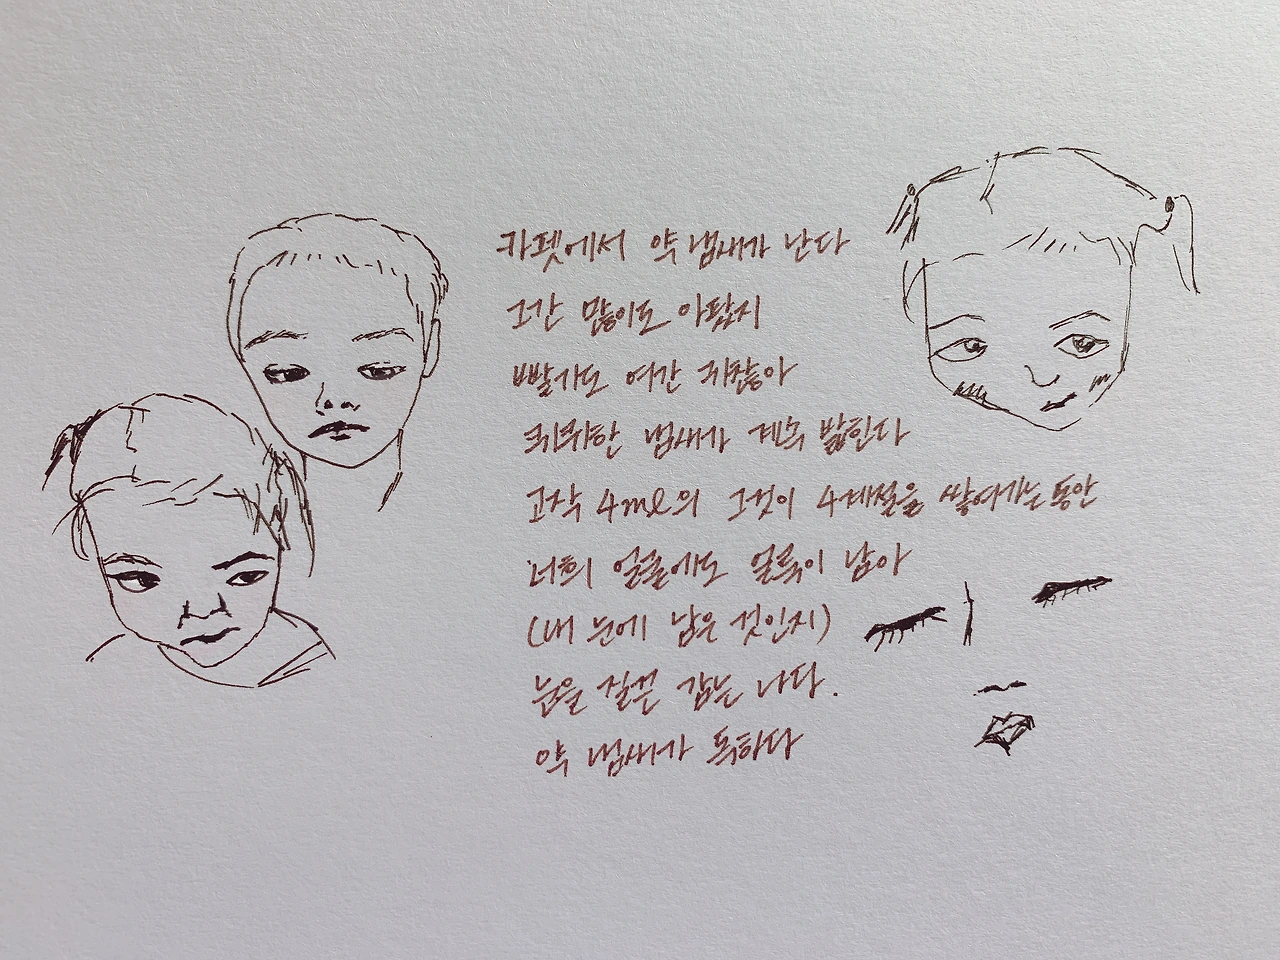 카펫에서 약 냄새가 난다
그간 많이도 아팠지
빨기도 여간 귀찮아
퀴퀴한 냄새가 계속 밟힌다
고작 4ml의 그것이 4계절을 쌓여가는 동안
너희 얼굴에도 얼룩이 남아
(내 눈에 남은 것인지)
눈을 질끈 감는 나다.
약 냄새가 독하다